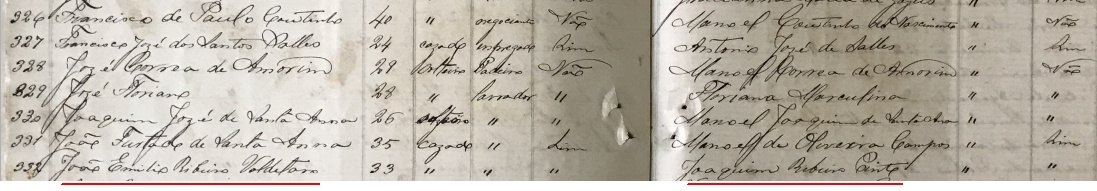 326 Francisco de Paulo Coutinho 40 " negociante Não Manoel Coutinho do Nascimento " Não
327 Francisco José dos Santos Salles 24 cazado empregado Sim Antonio José de Salles " Sim
328 José Correa de Amorim 29 solteiro Padeiro Não Manoel Correa de Amorim " Não
329 José Floriano 28 " lavrador " Floriana Marculina " "
330 Joaquim José de Santa Anna 26 " " Manoel Joaquim de Santa Anna " "
331 João Furtado de Santa Anna 35 cazado " Sim Manoel de Oliveira Campos " Sim
332 João Emilio Ribeiro Valdetaro 33 " " " Joaquim Ribeiro Pinto " "